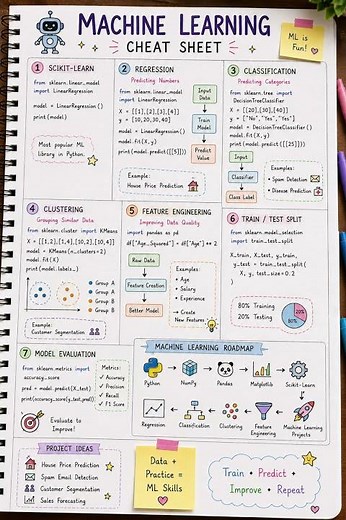 MACHINE LEARNING
CHEAT SHEET
ML is
Fun!
1 SCIKIT-LEARN
from sklearn.linear_model
import LinearRegression
model = LinearRegression()
print(model)
Most popular ML
library in Python.
2 REGRESSION
Predicting Numbers
from sklearn.linear_model
import LinearRegression
X = [[1],[2],[3],[4]]
y = [10,20,30,40]
model = LinearRegression()
model.fit(X,y)
print(model.predict([[5]]))
Input
Data
Train
Model
Predict
Value
Example:
House Price Prediction
3 CLASSIFICATION
Predicting Categories
from sklearn.tree import
DecisionTreeClassifier
X = [[20],[30],[40]]
y = ["No","Yes","Yes"]
model = DecisionTreeClassifier()
model.fit(X,y)
print(model.predict([[25]]))
Input
Classifier
Class Label
Examples:
• Spam Detection
• Disease Prediction
4 CLUSTERING
Grouping Similar Data
from sklearn.cluster import KMeans
X = [[1,2],[1,4],[10,2],[10,4]]
model = KMeans(n_clusters=2)
model.fit(X)
print(model.labels_)
Group A
Group A
Group B
Group B
Example:
Customer Segmentation
5 FEATURE ENGINEERING
Improving Data Quality
import pandas as pd
df["Age_Squared"] = df["Age"] ** 2
Raw Data
Feature Creation
Better Model
Examples:
• Age
• Salary
• Experience
Create
New Features
6 TRAIN / TEST SPLIT
from sklearn.model_selection
import train_test_split
X_train, X_test, y_train,
y_test = train_test_split(
X, y, test_size=0.2
)
80% Training
20% Testing
20%
80%
7 MODEL EVALUATION
from sklearn.metrics import
accuracy_score
pred = model.predict(X_test)
print(accuracy_score(y_test,pred))
Metrics:
✓ Accuracy
✓ Precision
✓ Recall
✓ F1 Score
Evaluate to
Improve!
MACHINE LEARNING ROADMAP
Python
NumPy
Pandas
Matplotlib
Scikit-Learn
Regression
Classification
Clustering
Feature
Engineering
Machine Learning
Projects
PROJECT IDEAS
House Price Prediction
Spam Email Detection
Customer Segmentation
Sales Forecasting
Data +
Practice =
ML Skills
Train • Predict •
Improve • Repeat